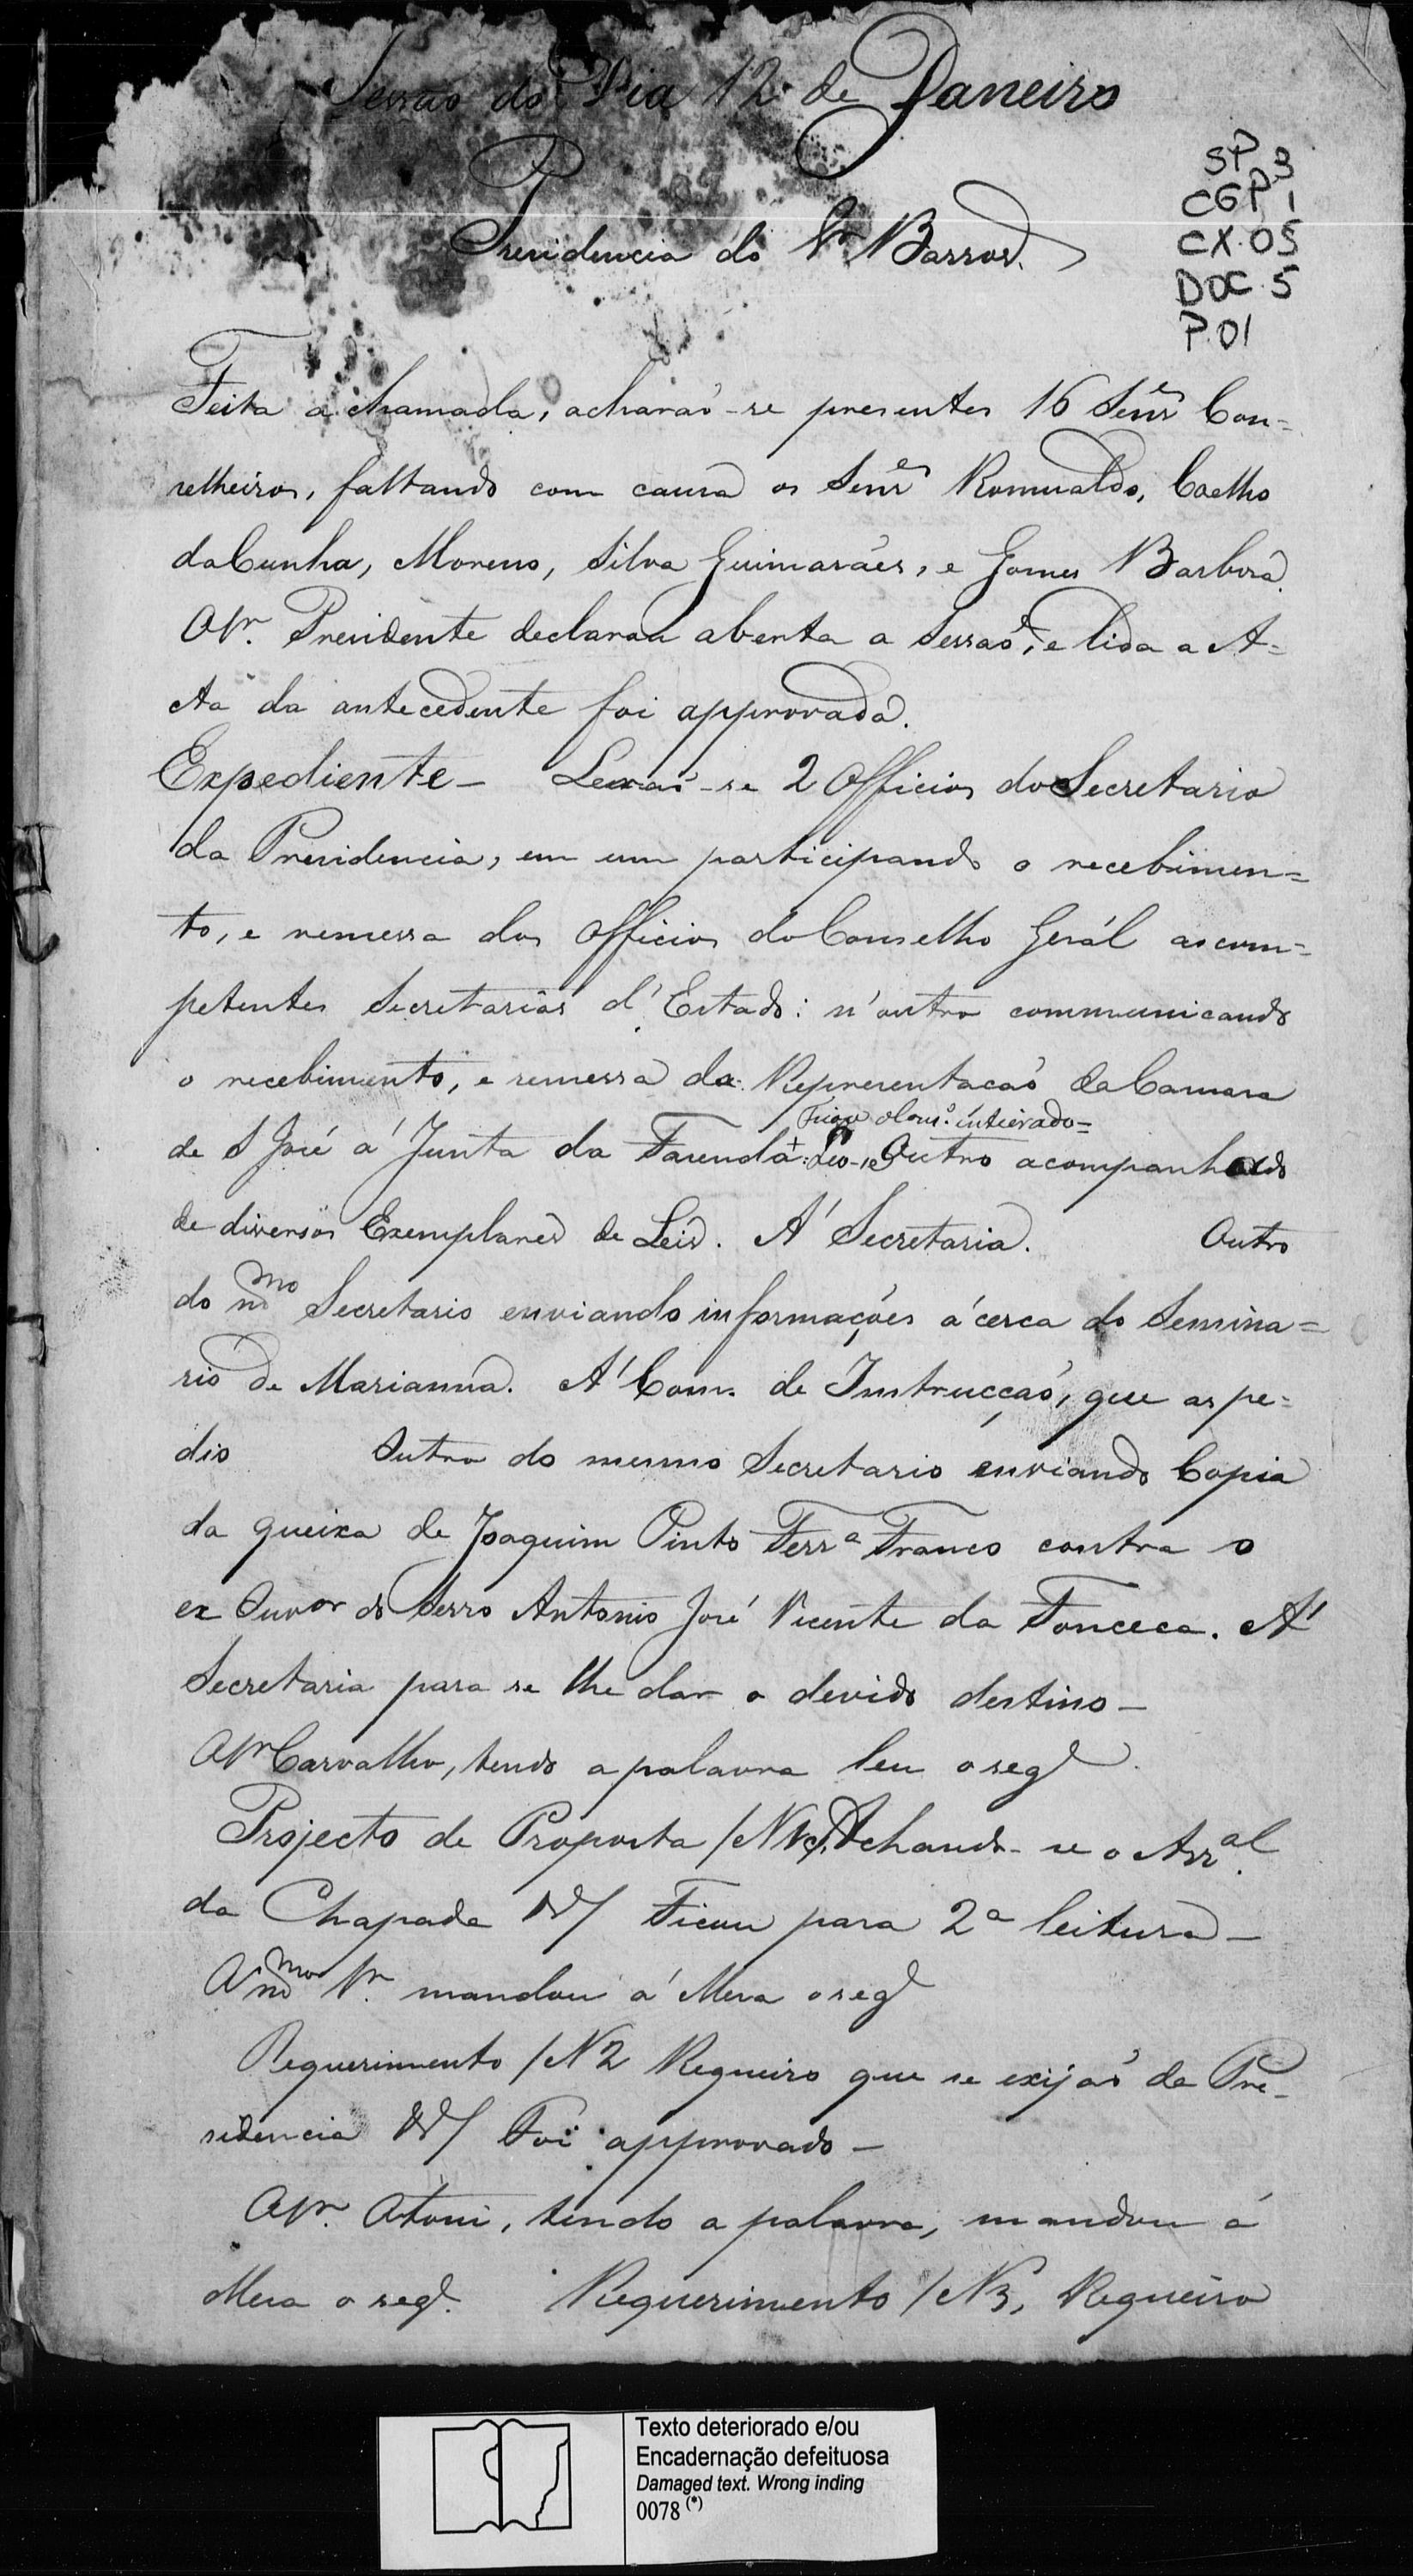 Sessaõ do Dia 12 de Janeiro
SP 3
CGP 1
CX.05
DOC.5
P.01
Presidencia do Sr Barros.
Feita a chamada, acharaõ-se presentes 16 Senres Con=
selheiros, faltando com causa os Senres Romualdo, Coelho
da Cunha, Moreno, Silva Guimarães, e Gomes Barbosa.
O Sr. Presidente declarou aberta a Sessaõ, e lida a A=
cta da antecedente foi approvada.
Expediente - Leraõ-se 2 Officios do Secretario
da Presidencia, em um participando o recebimen=
to, e remessa dos Officios do Conselho Gerál as com=
petentes Secretarias d'Estado: n'outro communicando
o recebimento, e remessa da Representacaõ da Camara
Ficou o Cons.o inteirado=
de S José á Junta da Fazenda+: Leo-se Outro acompanhado
de diversos Exemplares de Leis. Á Secretaria. Outro
do mmo Secretario enviando informações á cerca do Semina=
rio de Marianna. Á Com. de Instrucçaõ, que as pe=
dio Outro do mesmo Secretario enviando Copia
da queixa de Joaquim Pinto Ferra Franco contra o
ex Ouvor do Serro Antonio José Vicente da Fonceca. Á
Secretaria para se lhe dar o devido destino -
O Sr Carvalho, tendo a palavra leu o sege
Projecto de Proposta /N 1o, Achando-se o Arral.
da Chapada &/ Ficou para 2a leitura -
O mmo Sr. mandou á Mesa o sege
Requerimento /N 2 Requeiro que se exijaõ da Pre-
sidencia &/ Foi approvado -
O Sr. Otoni, tendo a palavra, mandou á
Mesa o sege. Requerimento /N3, Requeiro
Texto deteriorado e/ou
Encadernação defeituosa
Damaged text. Wrong inding
0078 (*)